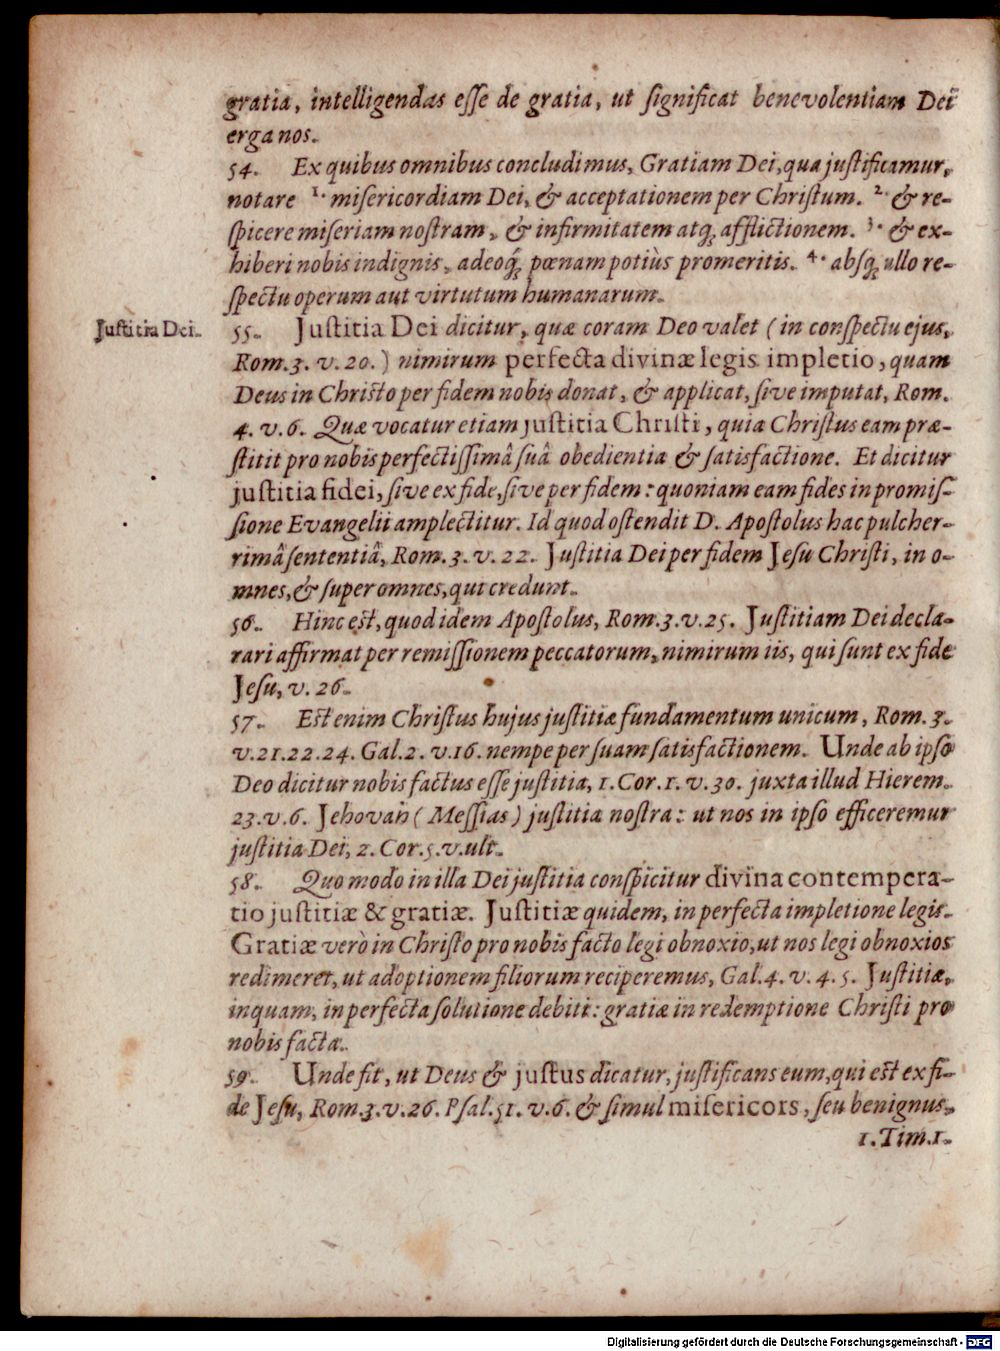 gratia, intelligendas esse de gratia, ut significat benevolentiam Dei
erga nos.
54. Ex quibus omnibus concludimus, Gratiam Dei, qua justificamur,
notare 1. misericordiam Dei, & acceptationem per Christum. 2. & re-
spicere miseriam nostram, & infirmitatem atq; afflictionem. 3. & ex-
hiberi nobis indignis, adeoq́; pœnam potiùs promeritis. 4. absq; ullo re-
spectu operum aut virtutum humanarum.
Justitia Dei.
55. Justitia Dei dicitur, quæ coram Deo valet (in conspectu ejus,
Rom. 3. v. 20.) nimirum perfecta divinæ legis impletio, quam
Deus in Christo per fidem nobis donat, & applicat, sive imputat, Rom.
4. v. 6. Quæ vocatur etiam justitia Christi, quia Christus eam præ-
stitit pro nobis perfectissimâ suâ obedientia & satisfactione. Et dicitur
justitia fidei, sive ex fide, sive per fidem: quoniam eam fides in promis-
sione Evangelii amplectitur. Id quod ostendit D. Apostolus hac pulcher-
rimâ sententiâ, Rom. 3. v. 22. Justitia Dei per fidem Jesu Christi, in o-
mnes, & super omnes, qui credunt.
56. Hinc est, quod idem Apostolus, Rom. 3. v. 25. Justitiam Dei decla-
rari affirmat per remissionem peccatorum, nimirum iis, qui sunt ex fide
Jesu, v. 26.
57. Est enim Christus hujus justitiæ fundamentum unicum, Rom. 3.
v. 21. 22. 24. Gal. 2. v. 16. nempe per suam satisfactionem. Unde ab ipso
Deo dicitur nobis factus esse justitia, 1. Cor. 1. v. 30. juxta illud Hierem.
23. v. 6. Jehovah (Messias) justitia nostra: ut nos in ipso efficeremur
justitia Dei, 2. Cor. 5. v. ult.
58. Quo modo in illa Dei justitia conspicitur divina contempera-
tio justitiæ & gratiæ. Justitiæ quidem, in perfecta impletione legis.
Gratiæ verò in Christo pro nobis facto legi obnoxio, ut nos legi obnoxios
redimeret, ut adoptionem filiorum reciperemus, Gal. 4. v. 4. 5. Justitiæ,
inquam, in perfecta solutione debiti: gratiæ in redemptione Christi pro
nobis facta.
59. Unde fit, ut Deus & justus dicatur, justificans eum, qui est ex fi-
de Jesu, Rom. 3. v. 26. Psal. 51. v. 6. & simul misericors, seu benignus,
1. Tim. 1.
Digitalisierung gefördert durch die Deutsche Forschungsgemeinschaft - DFG